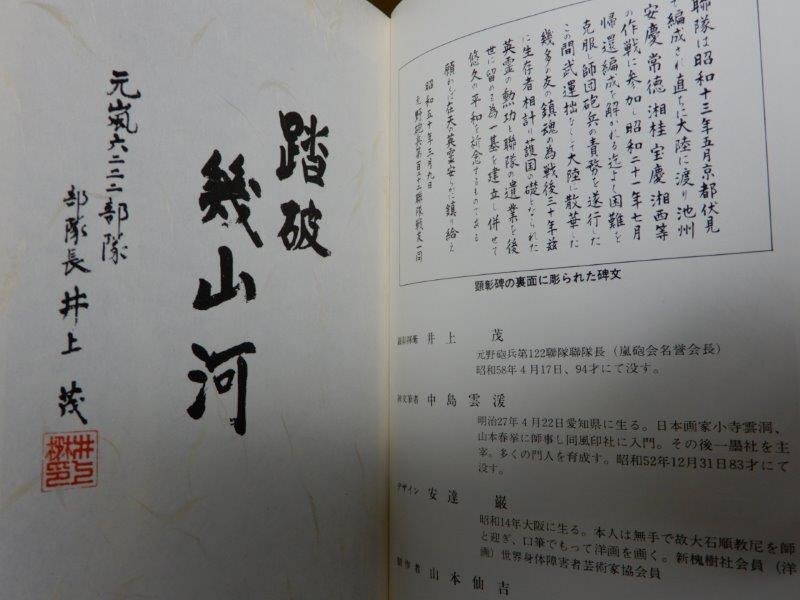 踏破
幾山河
元嵐六二二二部隊
部隊長 井上 茂
聯隊は昭和十三年五月京都伏見
で編成され直ちに大陸に渡り池州
安慶 常徳 湘桂 宝慶 湘西等
の作戦に参加し昭和二十一年七月
帰還編成を解かれる迄よく困難を
克服し師団砲兵の責務を遂行した
この間武運拙なくして大陸に散華した
幾多の友の鎮魂の為戦後三十年玆
に生存者相計り護国の礎となられた
英霊の勲功と聯隊の遺業を後
世に留める為一基を建立し併せて
悠久の平和を祈念するものである
願わくは在天の英霊安らかに鎮り給え
昭和五十年三月九日
元野砲兵第百二十二聯隊戦友一同
顕彰碑の裏面に彫られた碑文
井上 茂
元野砲兵第122聯隊聯隊長（嵐砲会名誉会長）
昭和58年4月17日、94才にて没す。
碑文筆者 中島雲湲
明治27年4月22日愛知県に生る。日本画家小寺雲洞、
山本春挙に師事し同風印社に入門。その後一墨社を主
宰。多くの門人を育成す。昭和52年12月31日83才にて
没す。
デザイン 安達 巌
昭和14年大阪に生る。本人は無手で故大石順教尼を師
と迎ぎ、口筆でもって洋画を画く。新槐樹社会員（洋
画）世界身体障害者芸術家協会員
制作者 山本仙吉